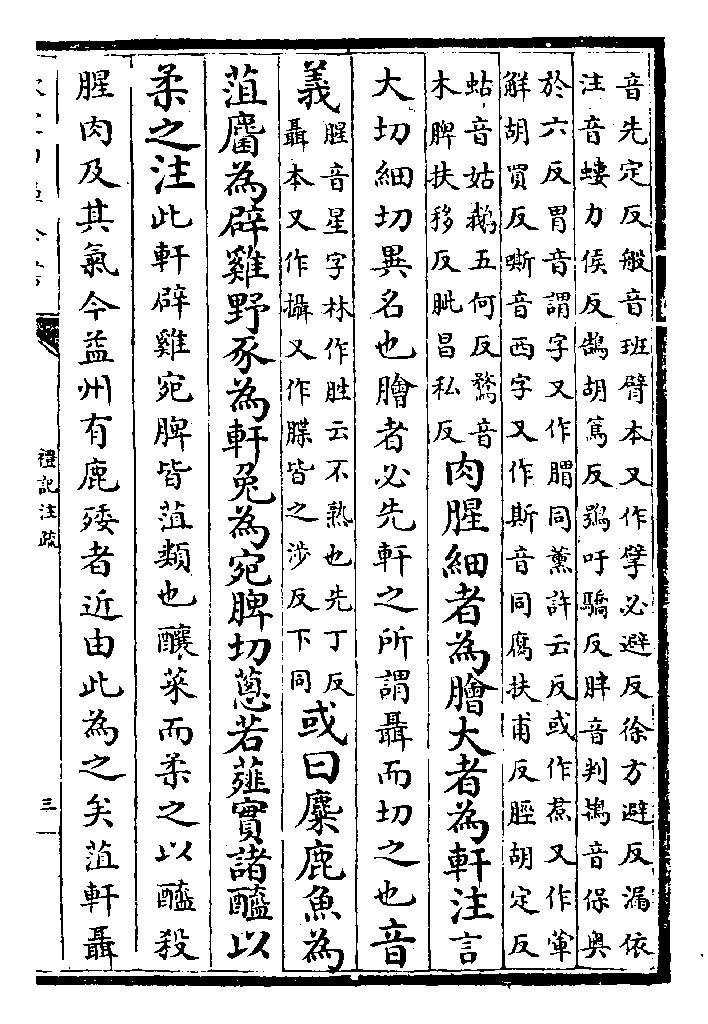 音先定反般音班臂本又作擘必避反徐方避反漏依
注音螻力侯反鵠胡篤反鴞吁驕反胖音判鴇音保奥
於六反胃音謂字又作䐜同薰許云反或作焄又作葷
鮮胡買反嘶音西字又作斯音同腐扶甫反脛胡定反
蛄音姑鵝五何反鶩音
木脾扶移反胵昌私反
肉腥細者為膾大者為軒注言
大切細切異名也膾者必先軒之所謂聶而切之也音
義
腥音星字林作胜云不熟也先丁反
聶本又作攝又作牒皆之涉反下同
或曰麋鹿魚為
菹麕為辟雞野豕為軒兔為宛脾切葱若薤實諸醯以
柔之注此軒辟雞宛脾皆菹類也釀菜而柔之以醯殺
腥肉及其氣今益州有鹿䐈者近由此為之矣菹軒聶
禮記注疏
三